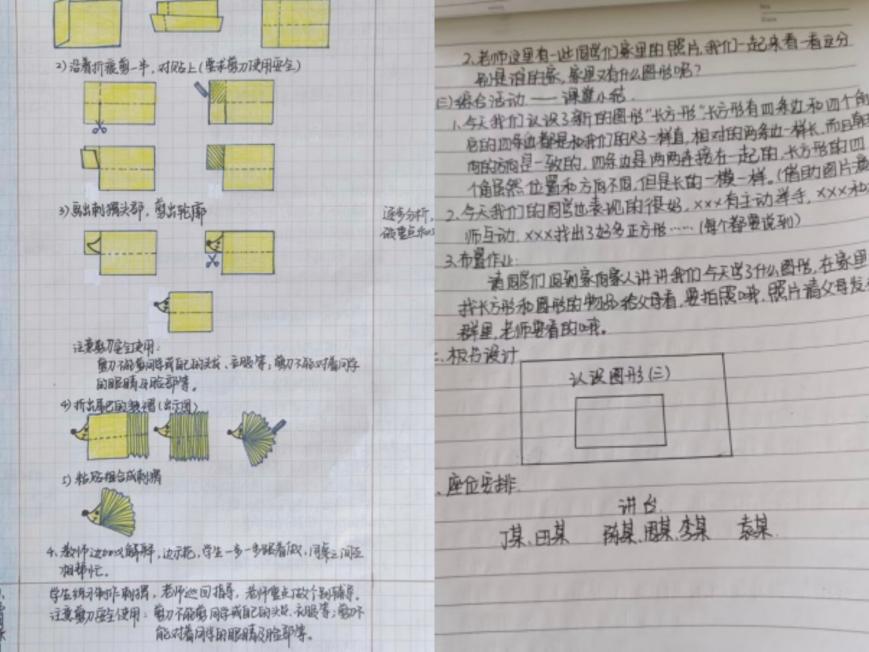 2)沿着折痕剪一半,对贴上(要求剪刀使用安全)
3)画出刺猬头部,剪出轮廓
注意剪刀安全使用:
剪刀不能剪同学或自己的头发、衣服等;剪刀不能对着同学
的眼睛及脸部等。
4)折出尾巴的皱褶(出示图)
5)粘贴组合成刺猬
4、教师边加以解释,边示范,学生一步一步跟着做,同桌之间互
相帮忙。
学生练习制作刺猬,老师巡回指导,老师重点做个别辅导。
注意剪刀安全使用:剪刀不能剪同学或自己的头发、衣服等;剪刀不
能对着同学的眼睛及脸部等。
逐步分析,
2、老师这里有一些同学们家里的照片,我们一起来看一看分
别是谁的家,家里又有什么图形呢?
(三)综合活动——课堂小结
1、今天我们认识了新的图形“长方形”长方形有四条边和四个角
它的四条边都是和我们的尺子一样直,相对的两条边一样长,而且
的方向是一致的,四条边是两两连接在一起的,长方形的四
个角虽然位置和方向不同,但是长的一模一样。(借助图片
2、今天我们的同学也表现的很好,xxx有主动举手,xxx和
师互动,xxx找出了好多正方形……(每个都要说到)
3、布置作业:
请同学们回到家向家人讲讲我们今天学了什么图形,在家里
找长方形和图形的物品给父母看,要拍照哦,照片请父母发
群里,老师要看的哦。
板书设计
认识图形(三)
座位安排
讲台
丁某、田某 陈某、周某、李某 袁某